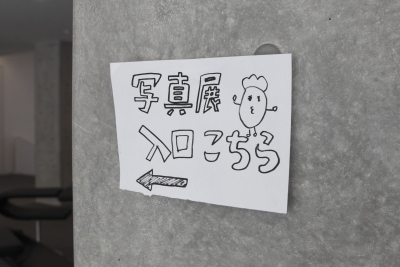 写真展
入口こちら
←